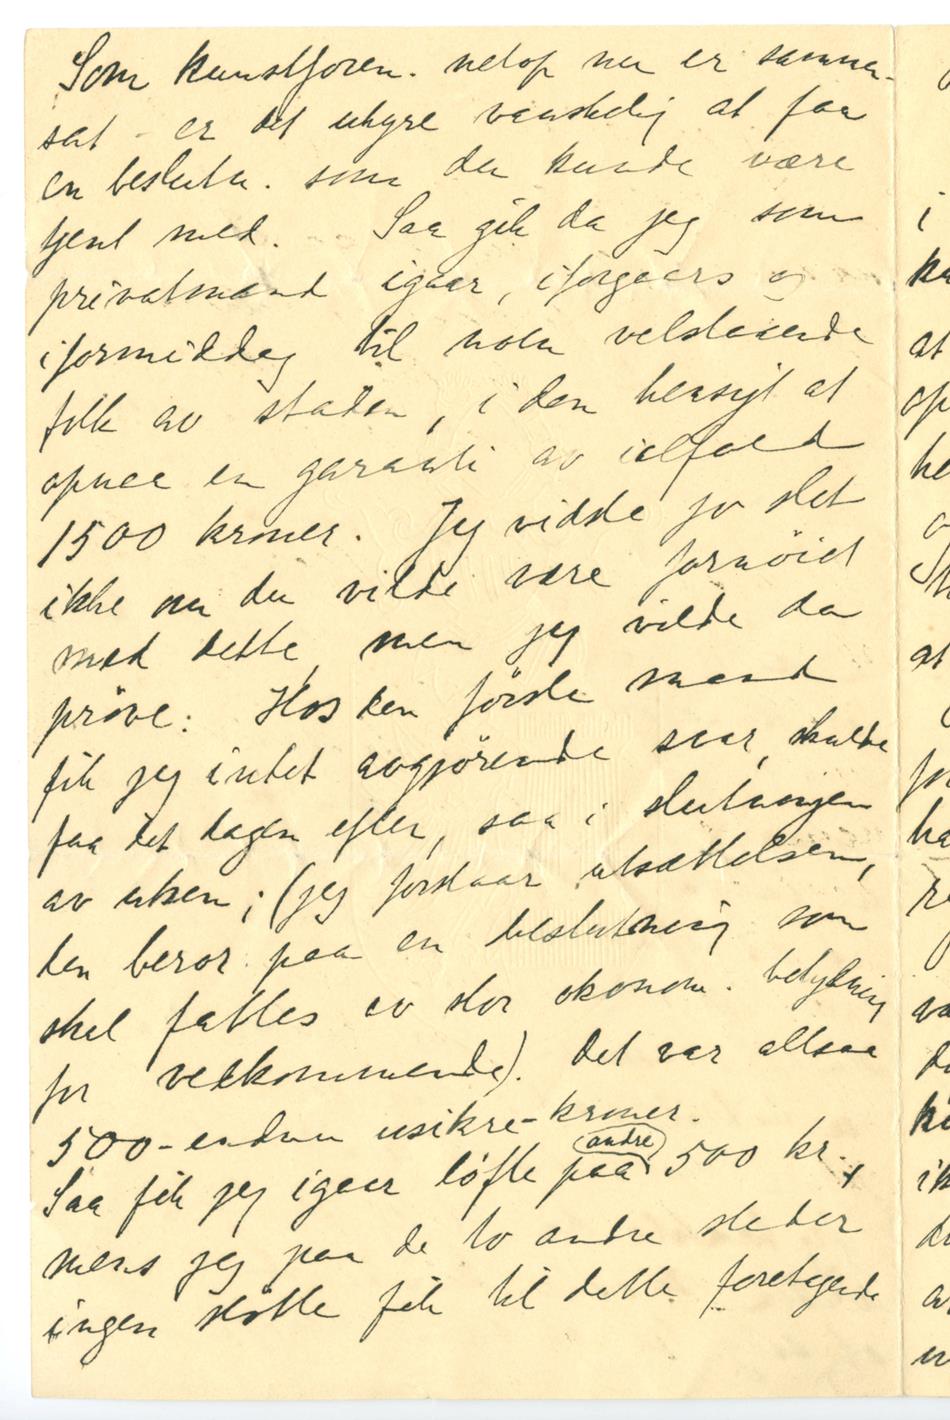 Som kunstforen. netop nu er samman-
sat - er det uhyre vanskelig at faa
en beslutn. som du kunde være
tjent med. Saa gik da jeg som
privatmand igaar, iforgaars og
iformiddag til noen velstaaende
folk av staden, i den hensigt at
opnaa en garanti av ialfald
1500 kroner. Jeg vidste jo slet
ikke om du vilde være fornöiet
med dette, men jeg vilde da
pröve: Hos den förste mand
fik jeg intet avgjörende svar, skulde
faa det dagen efter, saa i slutningen
av uken; (jeg forstaar utsættelsen,
den beror paa en beslutning som
skal fattes av stor økonom. betydning
for vedkommende). Det var altsaa
500 - endnu usikre - kroner.
Saa fik jeg igaar löfte paa andre 500 kr.,
mens jeg paa de to andre steder
ingen støtte fik til dette foretagende